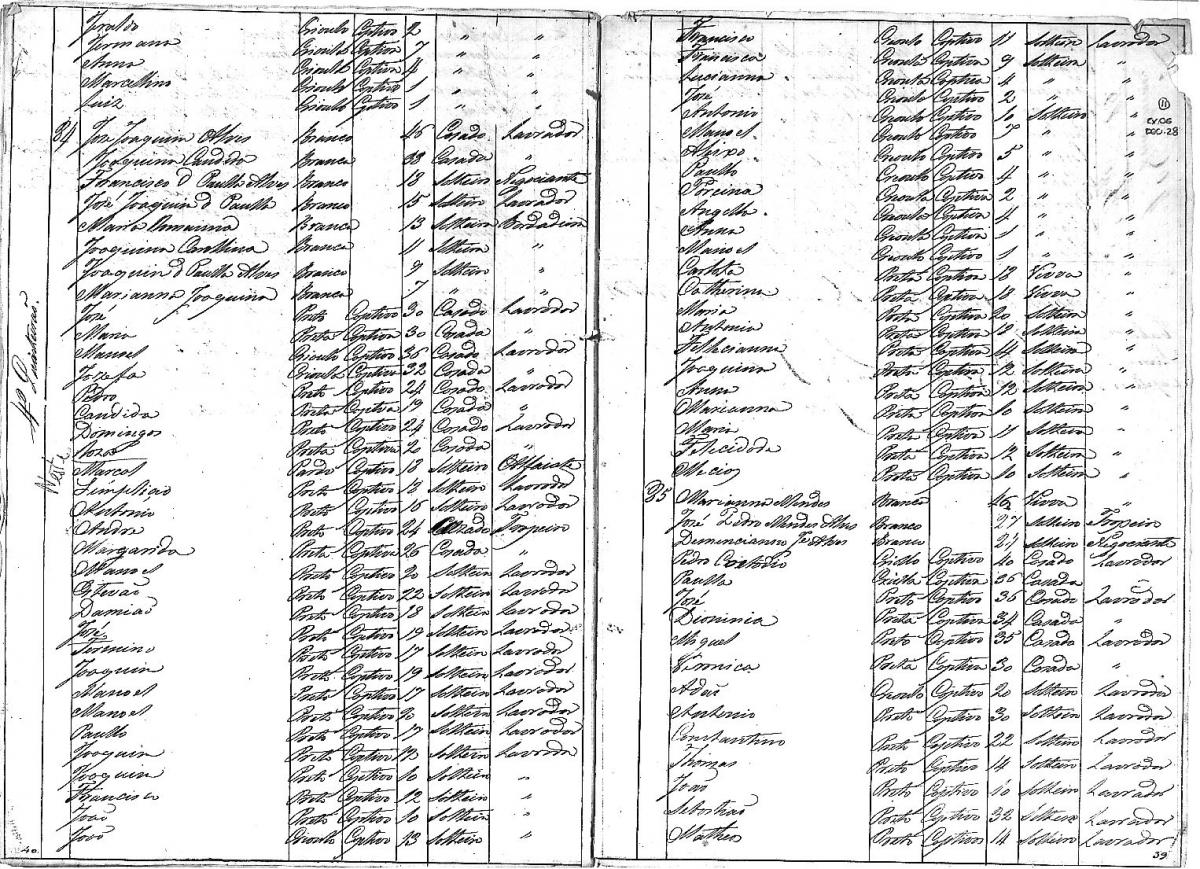 Crioulo Captivo 2 " "
Germana Crioula Captiva 7 " "
Anna Crioula Captiva 4 " "
Marcellino Crioulo Captivo 1 " "
Luiz Crioulo Captivo 1 " "
34 José Joaquim Alves Branco 46 Casado Lavrador
Joaquina Candida Branca 38 Casada "
Francisco d Paulla Alves Branco 18 Solteiro Negociante
José Joaquim d Paulla Branco 15 Solteiro Lavrador
Maria Branca 13 Solteira
Joaquina Carollina Branca 11 Solteira "
Joaquim d Paulla Alves Branco 9 Solteiro "
Marianna Joaquina Branca 7 " "
José Preto Captivo 30 Casado Lavrador
Maria Preta Captiva 30 Casada "
Manoel Crioulo Captivo 36 Casado Lavrador
Jozefa Crioula Captiva 32 Casada "
Pedro Preto Captivo 24 Casado Lavrador
Candida Preta Captiva 19 Casada "
Domingos Preto Captivo 24 Casado Lavrador
Preta Captiva 20 Casada "
Marcos Pardo Captivo 18 Solteiro Alfaiate
Simplicio Preto Captivo 18 Solteiro Lavrador
Antonio Preto Captivo 16 Solteiro Lavrador
Andre Preto Captivo 24 Casado Tropeiro
Margarida Preta Captiva 26 Casada "
Manoel Preto Captivo 20 Solteiro Lavrador
Estevaõ Preto Captivo 22 Solteiro Lavrador
Damiaõ Preto Captivo 18 Solteiro Lavrador
José Preto Captivo 19 Solteiro Lavrador
Preto Captivo 17 Solteiro Lavrador
Joaquim Preto Captivo 19 Solteiro Lavrador
Manoel Preto Captivo 17 Solteiro Lavrador
Manoel Preto Captivo 20 Solteiro Lavrador
Paullo Preto Captivo 17 Solteiro Lavrador
Joaquim Preto Captivo 13 Solteiro Lavrador
Joaquim Preto Captivo 10 Solteiro "
Francisco Preto Captivo 12 Solteiro "
Joaõ Preto Captivo 10 Solteiro "
Joaõ Crioulo Captivo 23 Solteiro "
40
4º
Francisco Crioulo Captivo 11 Solteiro Lavrador
Francisca Crioula Captiva 9 Solteira "
Lucianna Crioula Captiva 4 " "
José Crioulo Captivo 2 " "
Antonio Crioulo Captivo 10 Solteiro "
Manoel Crioulo Captivo 7 " "
Crioulo Captivo 5 " "
Paullo Crioulo Captivo 4 " "
Crioula Captiva 2 " "
Angella Crioula Captiva 4 " "
Anna Crioula Captiva 1 " "
Manoel Crioulo Captivo 1 " "
Carlota Preta Captiva 18 Viuva "
Catherina Preta Captiva 18 Viuva "
Maria Preta Captiva 20 Solteira "
Antonia Preta Captiva 18 Solteira "
Fellicianna Preta Captiva 14 Solteira "
Joaquina Preta Captiva 12 Solteira "
Anna Preta Captiva 12 Solteira "
Marianna Preta Captiva 10 Solteira "
Maria Preta Captiva 11 Solteira "
Preta Captiva 12 Solteira "
Preta Captiva 10 Solteira "
35 Marianna Mendes Branca 46 Viuva "
José Pedro Mendes Alves Branco 27 Solteiro Tropeiro
Branco Solteiro Negociante
Pedro Custodio Captivo 40 Casado Lavrador
Paulla Captiva 36 Casada
José Preto Captivo 36 Casado Lavrador
Dionizia Preta Captiva 34 Casada "
Miguel Preto Captivo 35 Casado Lavrador
Veronica Preta Captiva 30 Casada "
Adaõ Crioulo Captivo 20 Solteiro Lavrador
Antonio Preto Captivo 30 Solteiro Lavrador
Constantino Preto Captivo 22 Solteiro Lavrador
Thomas Preto Captivo 14 Solteiro Lavrador
Joaõ Preto Captivo 10 Solteiro Lavrador
Sebastiaõ Preto Captivo 32 Solteiro Lavrador
Matheos Preto Captivo 14 Solteiro Lavrador
39
11
CX.06
DOC.28